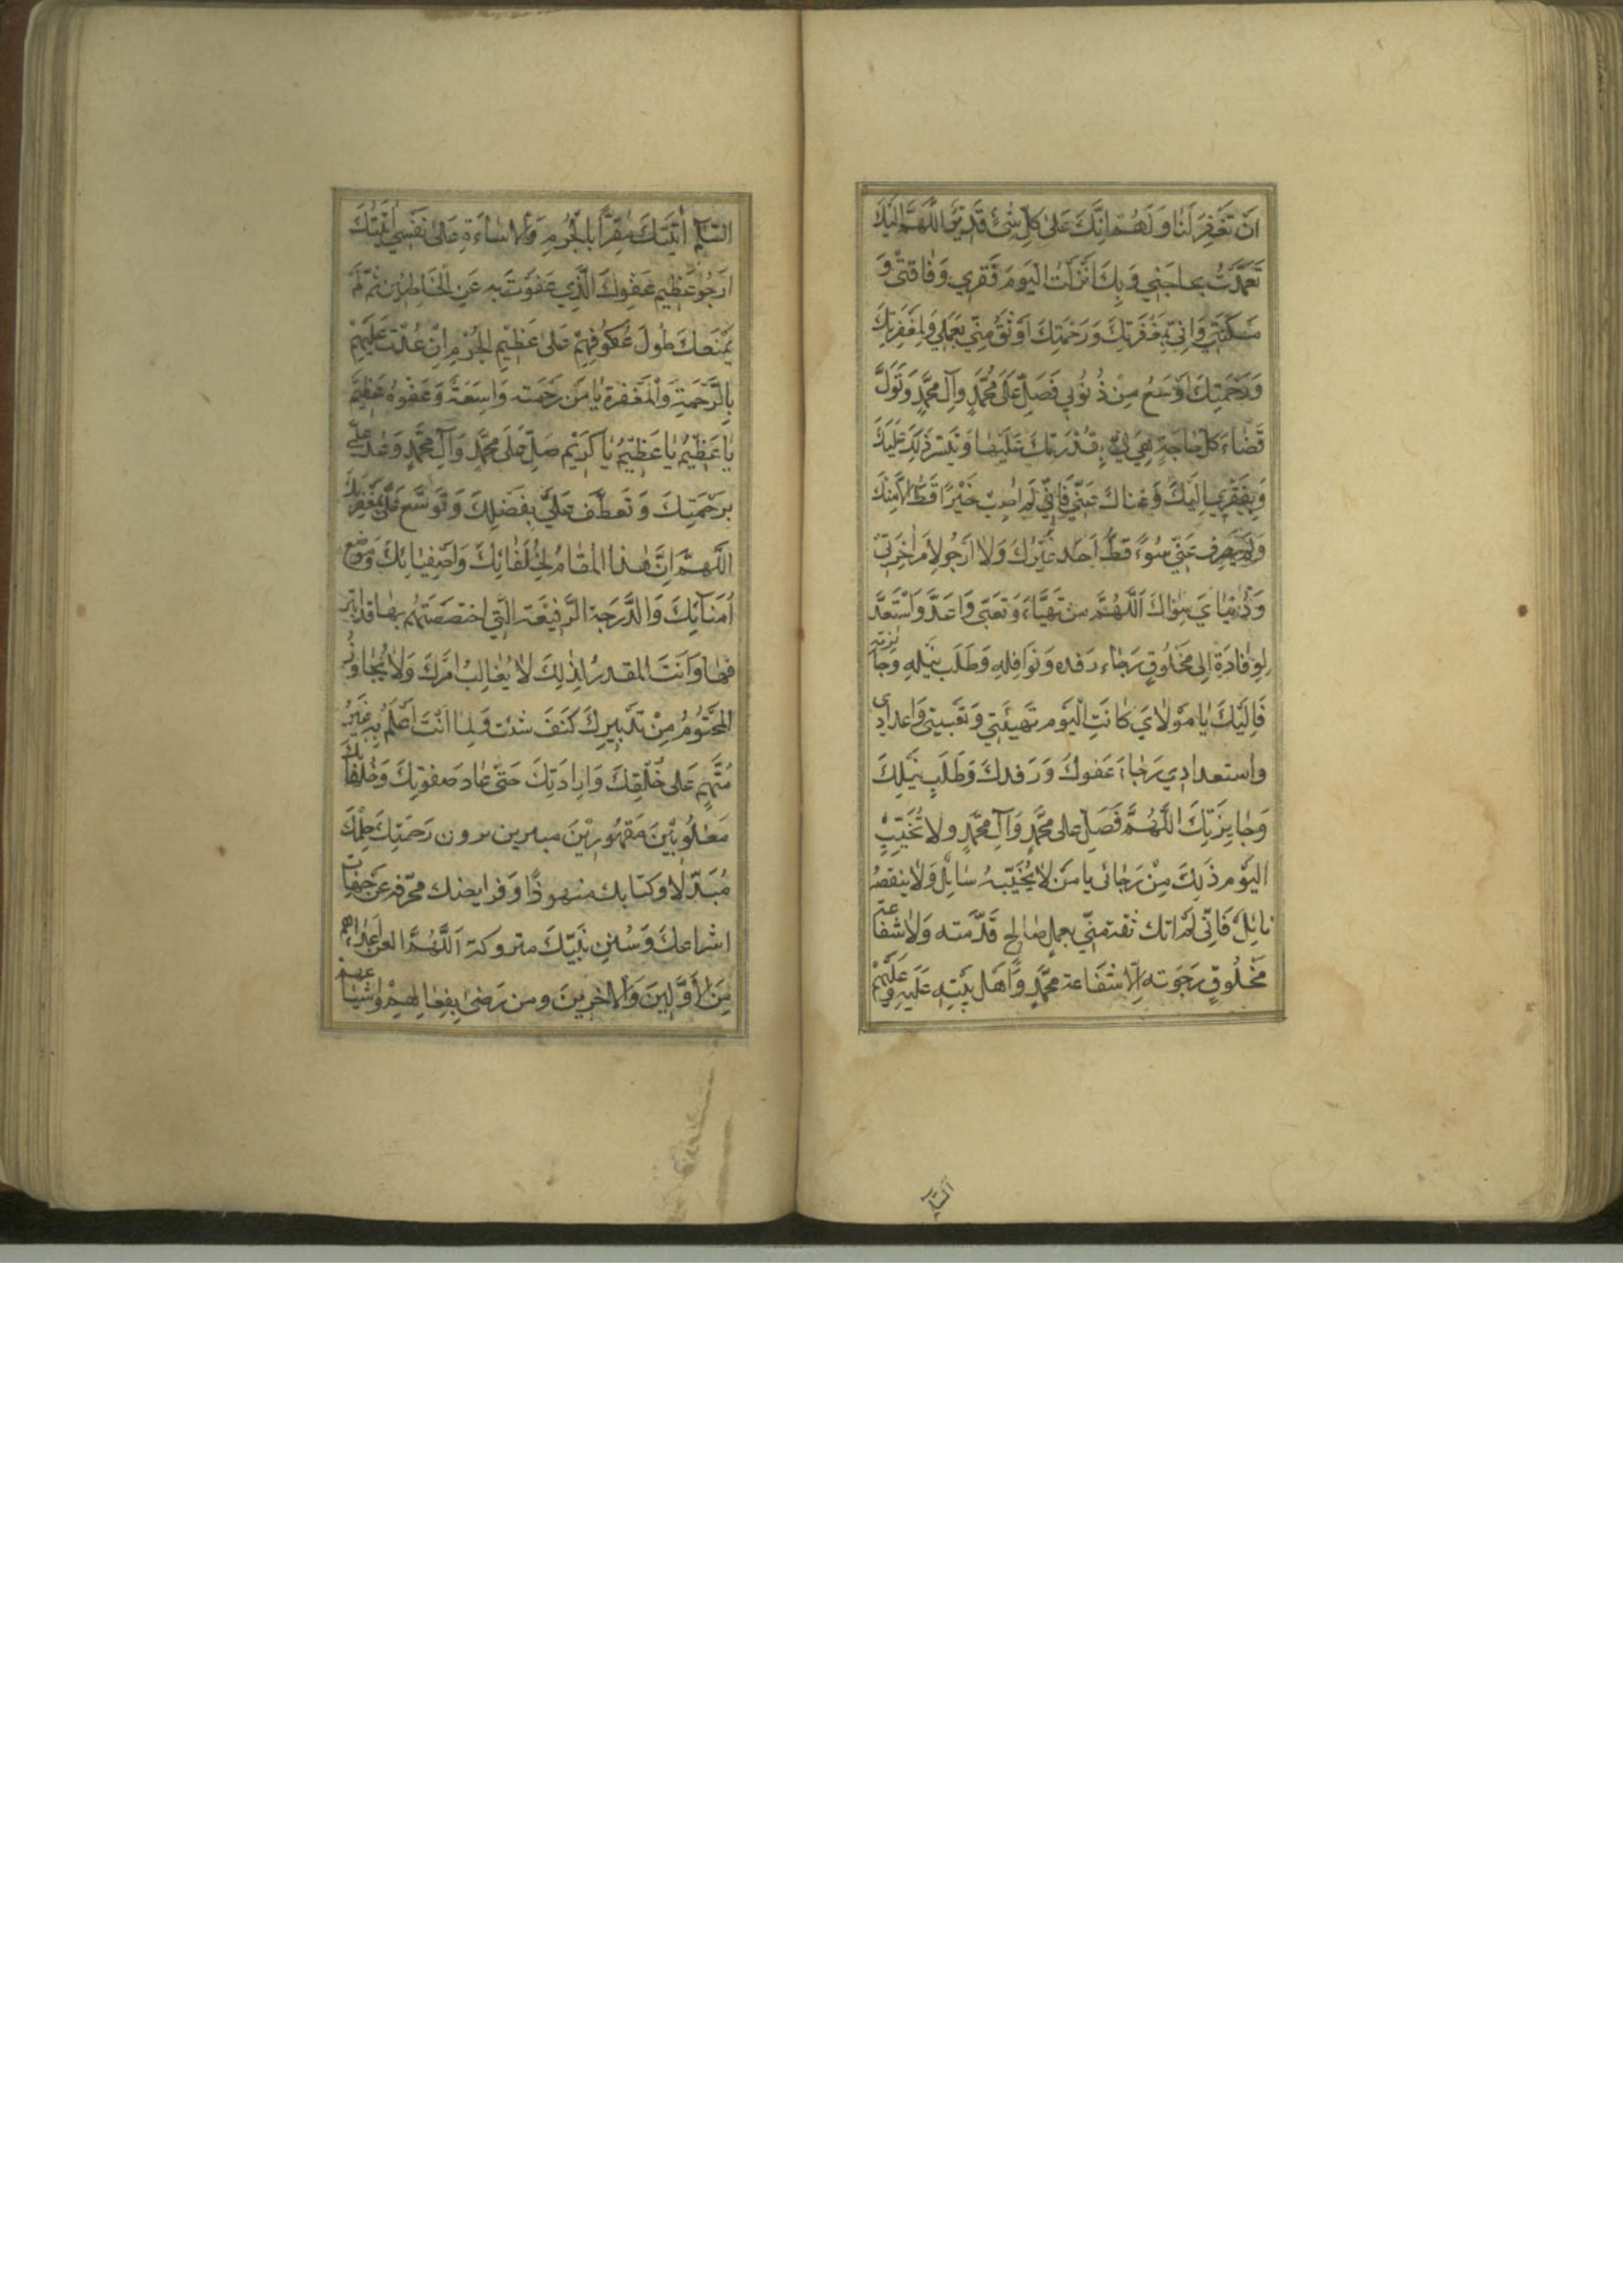 اَنْ تَغْفِرَ لَنَا وَلَهُمْ اِنَّكَ عَلىٰ كُلِّ شَيْءٍ قَدِيرٌ اَللّٰهُمَّ اِلَيْكَ
تَعَمَّدْتُ بِحاجَتِي وَبِكَ اَنْزَلْتُ الْيَوْمَ فَقْرِي وَفاقَتِي وَ
مَسْكَنَتِي وَاِنِّي بِمَغْفِرَتِكَ وَرَحْمَتِكَ اَوْثَقُ مِنِّي بِعَمَلِي وَلَمَغْفِرَتُكَ
وَرَحْمَتُكَ اَوْسَعُ مِنْ ذُنُوبِي فَصَلِّ عَلىٰ مُحَمَّدٍ وَآلِ مُحَمَّدٍ وَتَوَلَّ
قَضاءَ كُلِّ حاجَةٍ هِيَ لِي بِقُدْرَتِكَ عَلَيْها وَتَيْسِيرِ ذٰلِكَ عَلَيْكَ
وَبِفَقْرِي اِلَيْكَ وَغِناكَ عَنِّي فَاِنِّي لَمْ اُصِبْ خَيْرًا قَطُّ اِلَّا مِنْكَ
وَلَمْ يَصْرِفْ عَنِّي سُوءً قَطُّ اَحَدٌ غَيْرُكَ وَلا اَرْجُو لِاَمْرِ آخِرَتِي
وَدُنْيايَ سِواكَ اَللّٰهُمَّ مَنْ تَهَيَّاَ وَتَعَبّىٰ وَاَعَدَّ وَاسْتَعَدَّ
لِوِفادَةٍ اِلىٰ مَخْلُوقٍ رَجاءَ رِفْدِهِ وَنَوافِلِهِ وَطَلَبَ نَيْلِهِ وَجائِزَتِهِ
فَاِلَيْكَ يا مَوْلايَ كانَتِ الْيَوْمَ تَهْيِئَتِي وَتَعْبِيَتِي وَاِعْدادِي
واستعدادِي رَجاءَ عَفْوِكَ وَرِفْدِكَ وَطَلَبِ نَيْلِكَ
وَجايِزَتِكَ اَللّٰهُمَّ فَصَلِّ عَلىٰ مُحَمَّدٍ وَآلِ مُحَمَّدٍ وَلا تُخَيِّبِ
الْيَوْمَ ذٰلِكَ مِنْ رَجائِي يا مَنْ لا يُخَيِّبُهُ سائِلٌ وَلا يَنْقُصُهُ
نائِلٌ فَاِنِّي لَمْ آتِكَ ثِقَةً مِنِّي بِعَمَلٍ صالِحٍ قَدَّمْتُهُ وَلا شَفاعَةِ
مَخْلُوقٍ رَجَوْتُهُ اِلَّا شَفاعَةَ مُحَمَّدٍ وَاَهْلِ بَيْتِهِ عَلَيْهِ وَعَلَيْهِمُ
السَّلامُ اَتَيْتُكَ مُقِرًّا بِالْجُرْمِ وَالْاِساءَةِ عَلىٰ نَفْسِي اَتَيْتُكَ
اَرْجُو عَظِيمَ عَفْوِكَ الَّذِي عَفَوْتَ بِهِ عَنِ الْخاطِئِينَ ثُمَّ لَمْ
يَمْنَعْكَ طُولُ عُكُوفِهِمْ عَلىٰ عَظِيمِ الْجُرْمِ اَنْ عُدْتَ عَلَيْهِمْ
بِالرَّحْمَةِ وَالْمَغْفِرَةِ يا مَنْ رَحْمَتُهُ واسِعَةٌ وَعَفْوُهُ عَظِيمٌ
يا عَظِيمُ يا عَظِيمُ يا كَرِيمُ صَلِّ عَلىٰ مُحَمَّدٍ وَآلِ مُحَمَّدٍ وَعُدْ عَلَيَّ
بِرَحْمَتِكَ وَتَعَطَّفْ عَلَيَّ بِفَضْلِكَ وَتَوَسَّعْ عَلَيَّ بِمَغْفِرَتِكَ
اَللّٰهُمَّ اِنَّ هٰذَا الْمَقامَ لِخُلَفائِكَ وَاَصْفِيائِكَ وَمَواضِعَ
اُمَنائِكَ وَالدَّرَجَةِ الرَّفِيعَةِ الَّتِي اخْتَصَصْتَهُمْ بِها قَدِ ابْتَزُّ
وها وَاَنْتَ الْمُقَدِّرُ لِذٰلِكَ لا يُغالَبُ اَمْرُكَ وَلا يُجاوَزُ
الْمَحْتُومُ مِنْ تَدْبِيرِكَ كَيْفَ شِئْتَ وَلِما اَنْتَ اَعْلَمُ بِهِ غَيْرُ
مُتَّهَمٍ عَلىٰ خَلْقِكَ وَاِرادَتِكَ حَتّىٰ عادَ صَفْوَتُكَ وَخُلَفاؤُكَ
مَغْلُوبِينَ مَقْهُورِينَ يرون حكمك
مُبَدَّلًا وَكِتابَكَ مَنْبُوذًا وَفَرايِضَكَ مُحَرَّفَةً عَنْ جِهاتِ
اشراعك وَسُنَنَ نَبِيِّكَ مَتْرُوكَةً اَللّٰهُمَّ الْعَنْ اَعْداءَهُمْ
مِنَ الْاَوَّلِينَ وَالْآخِرِينَ وَمَنْ رَضِيَ بِفِعالِهِمْ وَاَشْياعَهُمْ
السَّلام